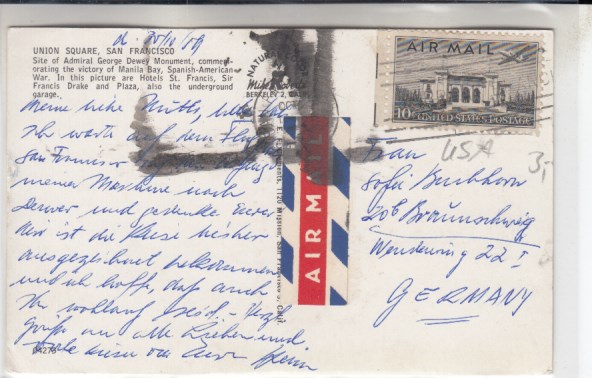 d. 20/10/59
UNION SQUARE, SAN FRANCISCO
Site of Admiral George Dewey Monument, commem-
orating the victory of Manila Bay, Spanish-American
War. In this picture are Hotels St. Francis, Sir
Francis Drake and Plaza, also the underground
garage.
Meine liebe Mutti,
Ich warte auf dem
San Francisco
meiner Maschine nach
Denver und gedenke Eurer
ist die Reise bisher
ausgezeichnet bekommen
und ich hoffe, daß auch
Ihr wohlauf seid. - Herzl.
Grüße an alle Lieben und
von Eurer Heini
04279
BERKELEY 2, CALIF.
AIR MAIL
AIR MAIL
10¢ UNITED STATES POSTAGE
USA
3,-
Frau
Sofie Buchhorn
20b Braunschweig
Wendenring 22 I
GERMANY